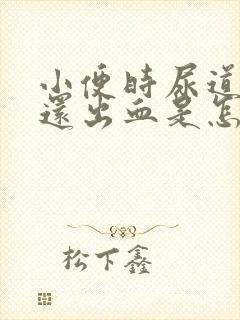 小便時尿道
還出血是怎
松下鑫